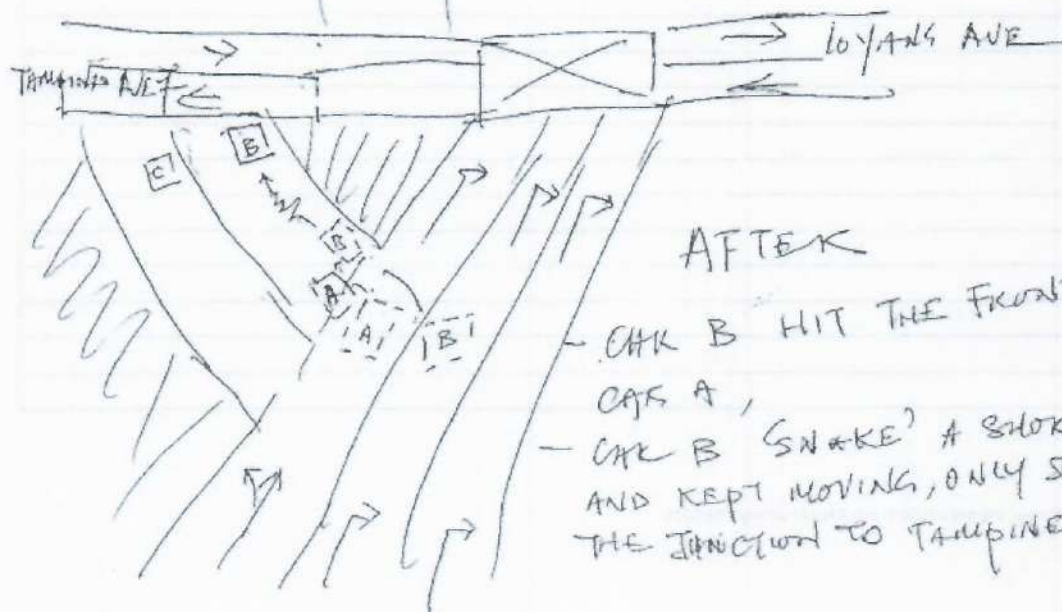 LOYANG AVE
TAMPINES AVE 7
C
B
B
A
A
B
AFTER
- CAR B HIT THE FRONT
CAR A,
- CAR B 'SNAKE' A SHOR
AND KEPT MOVING, ONLY S
THE JUNCTION TO TAMPINE